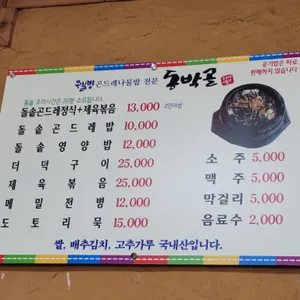 웰빙 곤드레나물밥 전문 동박골
공기밥은 따로
판매하지 않습니다
돌솥 조리시간은 20분 소요됩니다
돌솥곤드레정식+제육볶음 13,000 2인이상
돌솥곤드레밥 10,000
돌솥영양밥 12,000
더덕구이 25,000
제육볶음 25,000
메밀전병 12,000
도토리묵 15,000
소주 5,000
맥주 5,000
막걸리 5,000
음료수 2,000
쌀, 배추김치, 고추가루 국내산입니다.